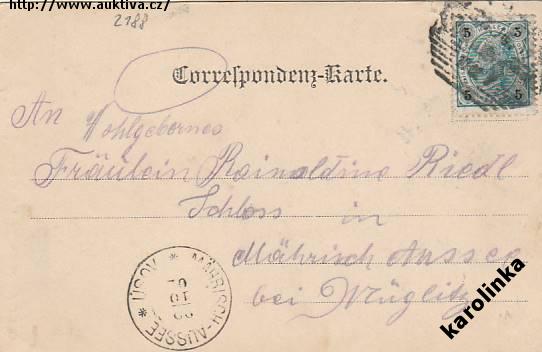 http://www.auktiva.cz/
2188
Correspondenz-Karte.
5 5
5 5
An
Wohlgebornes
Fräulein Rainaldine Riedl
Schloss in
Mährisch Aussee
bei Müglitz
MÄHRISCH-AUSSEE * ÚSOV *
karolinka